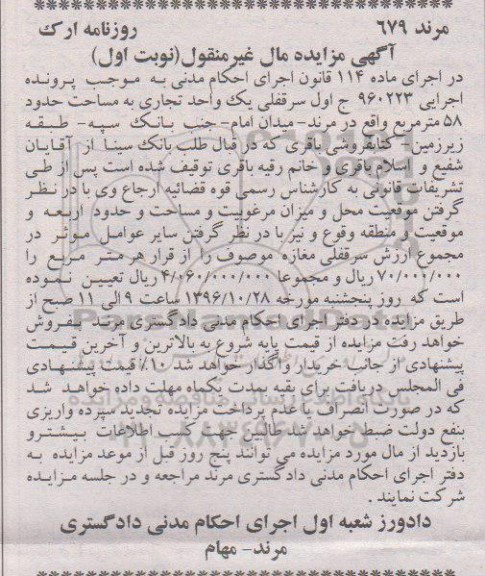 مرند ۶۷۹ روزنامه ارک
آگهی مزایده مال غیرمنقول(نوبت اول)
در اجرای ماده ۱۱۴ قانون اجرای احکام مدنی به موجب پرونده
اجرایی ۹۶۰۲۲۳ ج اول سرقفلی یک واحد تجاری به مساحت حدود
۵۸ مترمربع واقع در مرند- میدان امام- جنب بانک سپه- طبقه
زیرزمین- کتابفروشی باقری که در قبال طلب بانک سینا از آقایان
شفیع و اسلام باقری و خانم رقیه باقری توقیف شده است پس از طی
تشریفات قانونی به کارشناس رسمی قوه قضائیه ارجاع وی با در نظر
گرفتن موقعیت محل و میزان مرغوبیت و مساحت و حدود اربعه و
موقعیت و منطقه وقوع و نیز با در نظر گرفتن سایر عوامل موثر در
مجموع ارزش سرقفلی مغازه موصوف را از قرار هر متر مربع را
۷۰/۰۰۰/۰۰۰ ریال و مجموعا ۴/۰۶۰/۰۰۰/۰۰۰ ریال تعیین نموده
است که روز پنجشنبه مورخه ۱۳۹۶/۱۰/۲۸ ساعت ۹ الی ۱۱ صبح از
طریق مزایده در دفتر اجرای احکام مدنی دادگستری مرند بفروش
خواهد رفت مزایده از قیمت پایه شروع به بالاترین و آخرین قیمت
پیشنهادی از جانب خریدار واگذار خواهد شد ۱۰٪ قیمت پیشنهادی
فی المجلس دریافت برای بقیه بمدت یکماه مهلت داده خواهد شد
که در صورت انصراف یا عدم پرداخت مزایده تجدید سپرده واریزی
بنفع دولت ضبط خواهد شد طالبین جهت کسب اطلاعات بیشترو
بازدید از مال مورد مزایده می توانند پنج روز قبل از موعد مزایده به
دفتر اجرای احکام مدنی دادگستری مرند مراجعه و در جلسه مزایده
شرکت نمایند .
دادورز شعبه اول اجرای احکام مدنی دادگستری
مرند- مهام
ParsNamadData
پایگاه اطلاع رسانی مناقصه و مزایده